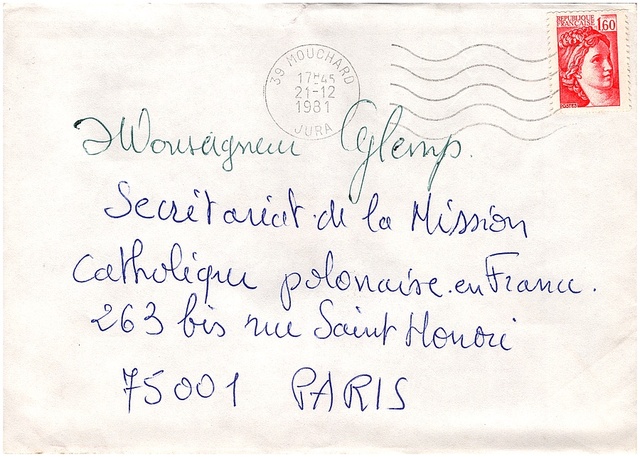 REPUBLIQUE
FRANÇAISE 1,60
39 MOUCHARD
17H45
21-12
1981
JURA
Monseigneur Cglemp.
Secrétariat de la Mission
Catholique polonaise en France.
263 bis rue Saint Honoré
75001 PARIS